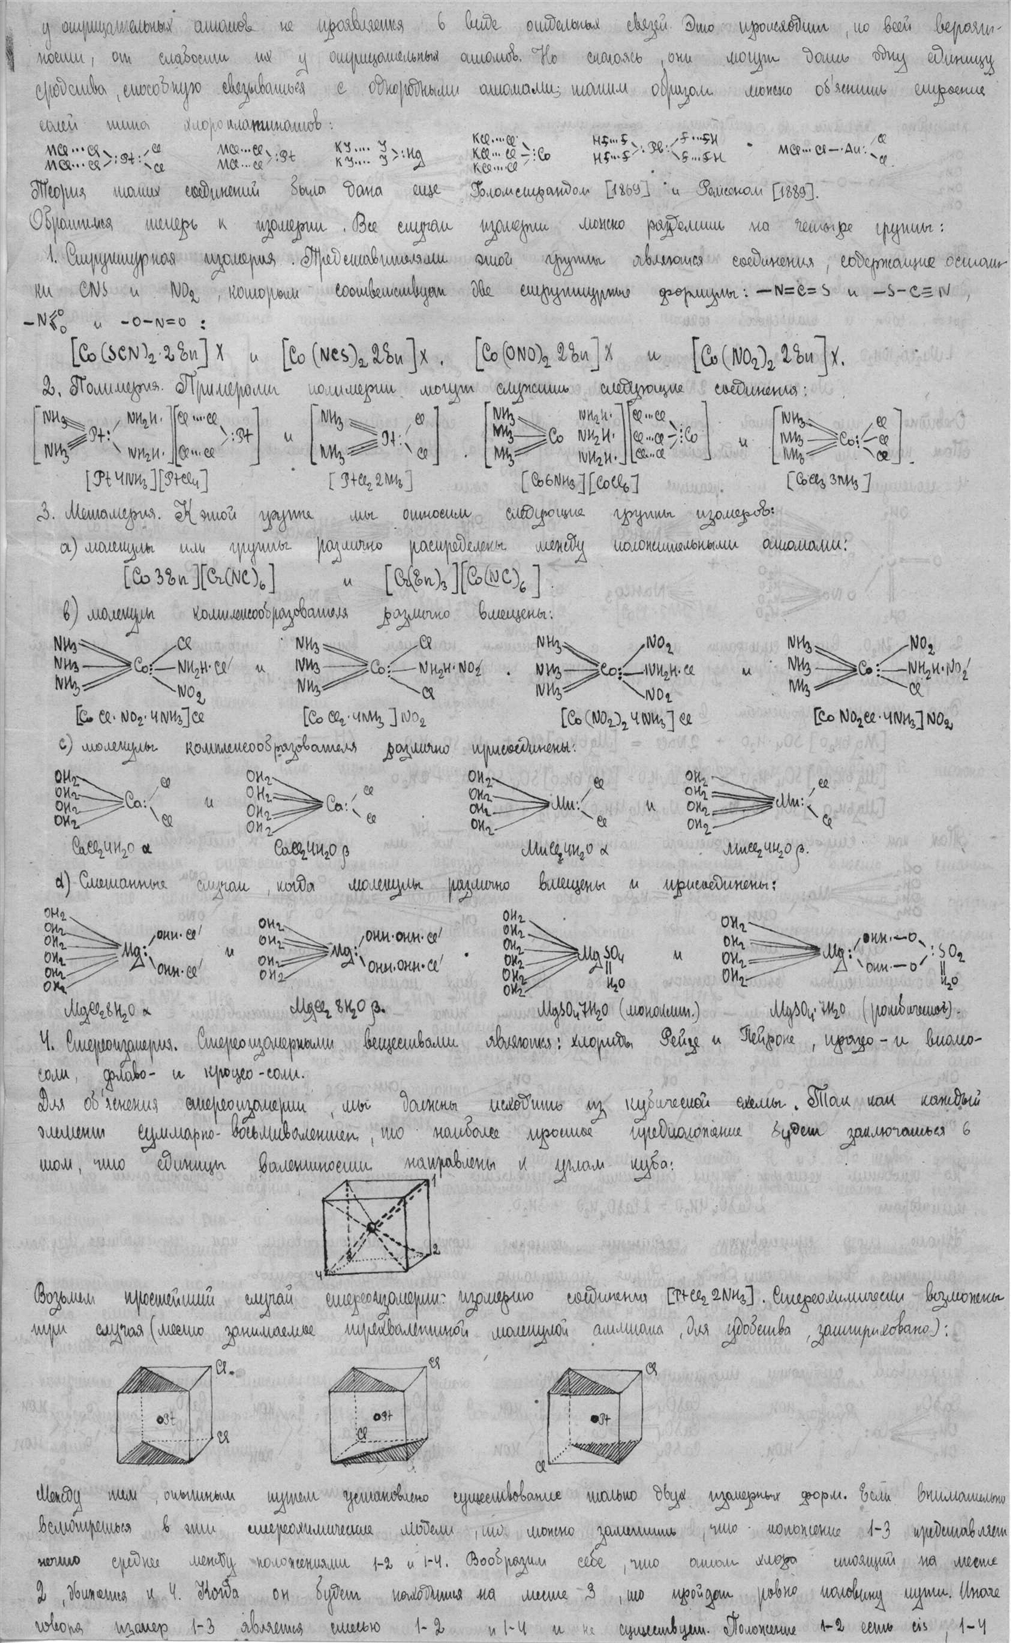 у отрицательных атомов не проявляется в виде отдельных связей. Это происходит, по всей вероят-
ности, от слабости их у отрицательных атомов. Но слагаясь, они могут дать одну единицу
сродства, способную связываться с однородными атомами; таким образом можно объяснить строение
солей типа хлороплатинатов:
MCl···Cl MCl···Cl >:Pt:< Cl Cl MCl···Cl MCl···Cl >:Pt KJ···· J KJ···· J >:Hg KCl···Cl KCl···Cl KCl···Cl Co HF···F HF···F >:Pb:< F···FH F···FH MCl···Cl—Au: Cl Cl
Теория таких соединений была дана еще Бломстрандом [1869] и Ремсеном [1889].
Обратимся теперь к изомерии. Все случаи изомерии можно разделить на четыре группы:
1. Структурная изомерия. Представителями этой группы являются соединения, содержащие остат-
ки CNS и NO2, которым соответствуют две структурные формулы: —N=C=S и —S—C≡N,
—N O O и —O—N=O :
[Co(SCN)2·2En]X и [Co(NCS)2 2En]X. [Co(ONO)2 2En]X и [Co(NO2)2 2En]X.
2. Полимерия. Примерами полимерии могут служить следующие соединения:
[NH3 NH3 Pt: NH2H· NH2H·][Cl···Cl Cl···Cl >:Pt] и [NH3 NH3 Pt: Cl Cl]. [NH3 NH3 NH3 Co NH2H· NH2H· NH2H·][Cl···Cl Cl···Cl Cl···Cl Co] и [NH3 NH3 NH3 Co: Cl Cl Cl].
[Pt4NH3][PtCl4] [PtCl2 2NH3] [Co6NH3][CoCl6] [CoCl3 3NH3]
3. Метамерия. К этой группе мы относим следующие группы изомеров:
a) молекулы или группы различно распределены между положительными атомами:
[Co3En][Cr(NC)6] и [Cr(En)3][Co(NC)6].
b) молекулы комплексообразователя различно вмещены:
NH3 NH3 NH3 Co: Cl NH2H·Cl' NO2 и NH3 NH3 NH3 Co: Cl NH2H·NO2' Cl . NH3 NH3 NH3 Co: NO2 NH2H·Cl NO2 и NH3 NH3 NH3 Co: NO2 NH2H·NO2' Cl
[CoCl·NO2·4NH3]Cl [CoCl2·4NH3]NO2 [Co(NO2)2 4NH3]Cl [CoNO2Cl·4NH3]NO2
c) молекулы комплексообразователя различно присоединены:
OH2 OH2 OH2 OH2 Ca: Cl Cl и OH2 OH2 OH2 OH2 Ca: Cl Cl OH2 OH2 OH2 OH2 Mn: Cl Cl и OH2 OH2 OH2 OH2 Mn: Cl Cl
CaCl2 4H2O α CaCl2 4H2O β MnCl2 4H2O α MnCl2 4H2O β.
d) Смешанные случаи, когда молекулы различно вмещены и присоединены:
OH2 OH2 OH2 OH2 OH2 OH2 Mg: OHH·Cl' OHH·Cl' и OH2 OH2 OH2 OH2 Mg: OHH·OHH·Cl' OHH·OHH·Cl' . OH2 OH2 OH2 OH2 OH2 OH2 MgSO4 H2O и OH2 OH2 OH2 OH2 Mg: OHH·—O OHH·—O :SO2 H2O
MgCl2 8H2O α MgCl2 8H2O β. MgSO4 7H2O (моноклин.) MgSO4 7H2O (ромбический).
4. Стереоизомерия. Стереоизомерными веществами являются: хлориды Рейзе и Пейроне, празео- и виолео-
соли, флаво- и кроцео-соли.
Для объяснения стереоизомерии, мы должны исходить из кубической схемы. Так как каждый
элемент суммарно-восьмивалентен, то наиболее простое предположение будет заключаться в
том, что единицы валентности направлены к углам куба:
1
2
3
4
Возьмем простейший случай стереоизомерии: изомерию соединения [PtCl2 2NH3]. Стереохимически возможены
три случая (место занимаемое трехвалентной молекулой аммиака, для удобства, заштриховано):
Cl Cl Cl
Pt Pt Pt
Cl Cl Cl
Между тем, опытным путем установлено существование только двух изомерных форм. Если внимательно
всмотреться в эти стереохимические модели, то можно заметить, что положение 1-3 представляет
нечто среднее между положениями 1-2 и 1-4. Вообразим себе, что атом хлора стоящий на месте
2, движется к 4. Когда он будет находиться на месте 3, то пройдет ровно половину пути. Иначе
говоря изомер 1-3 является смесью 1-2 и 1-4 и не существует. Положение 1-2 есть cis, 1-4